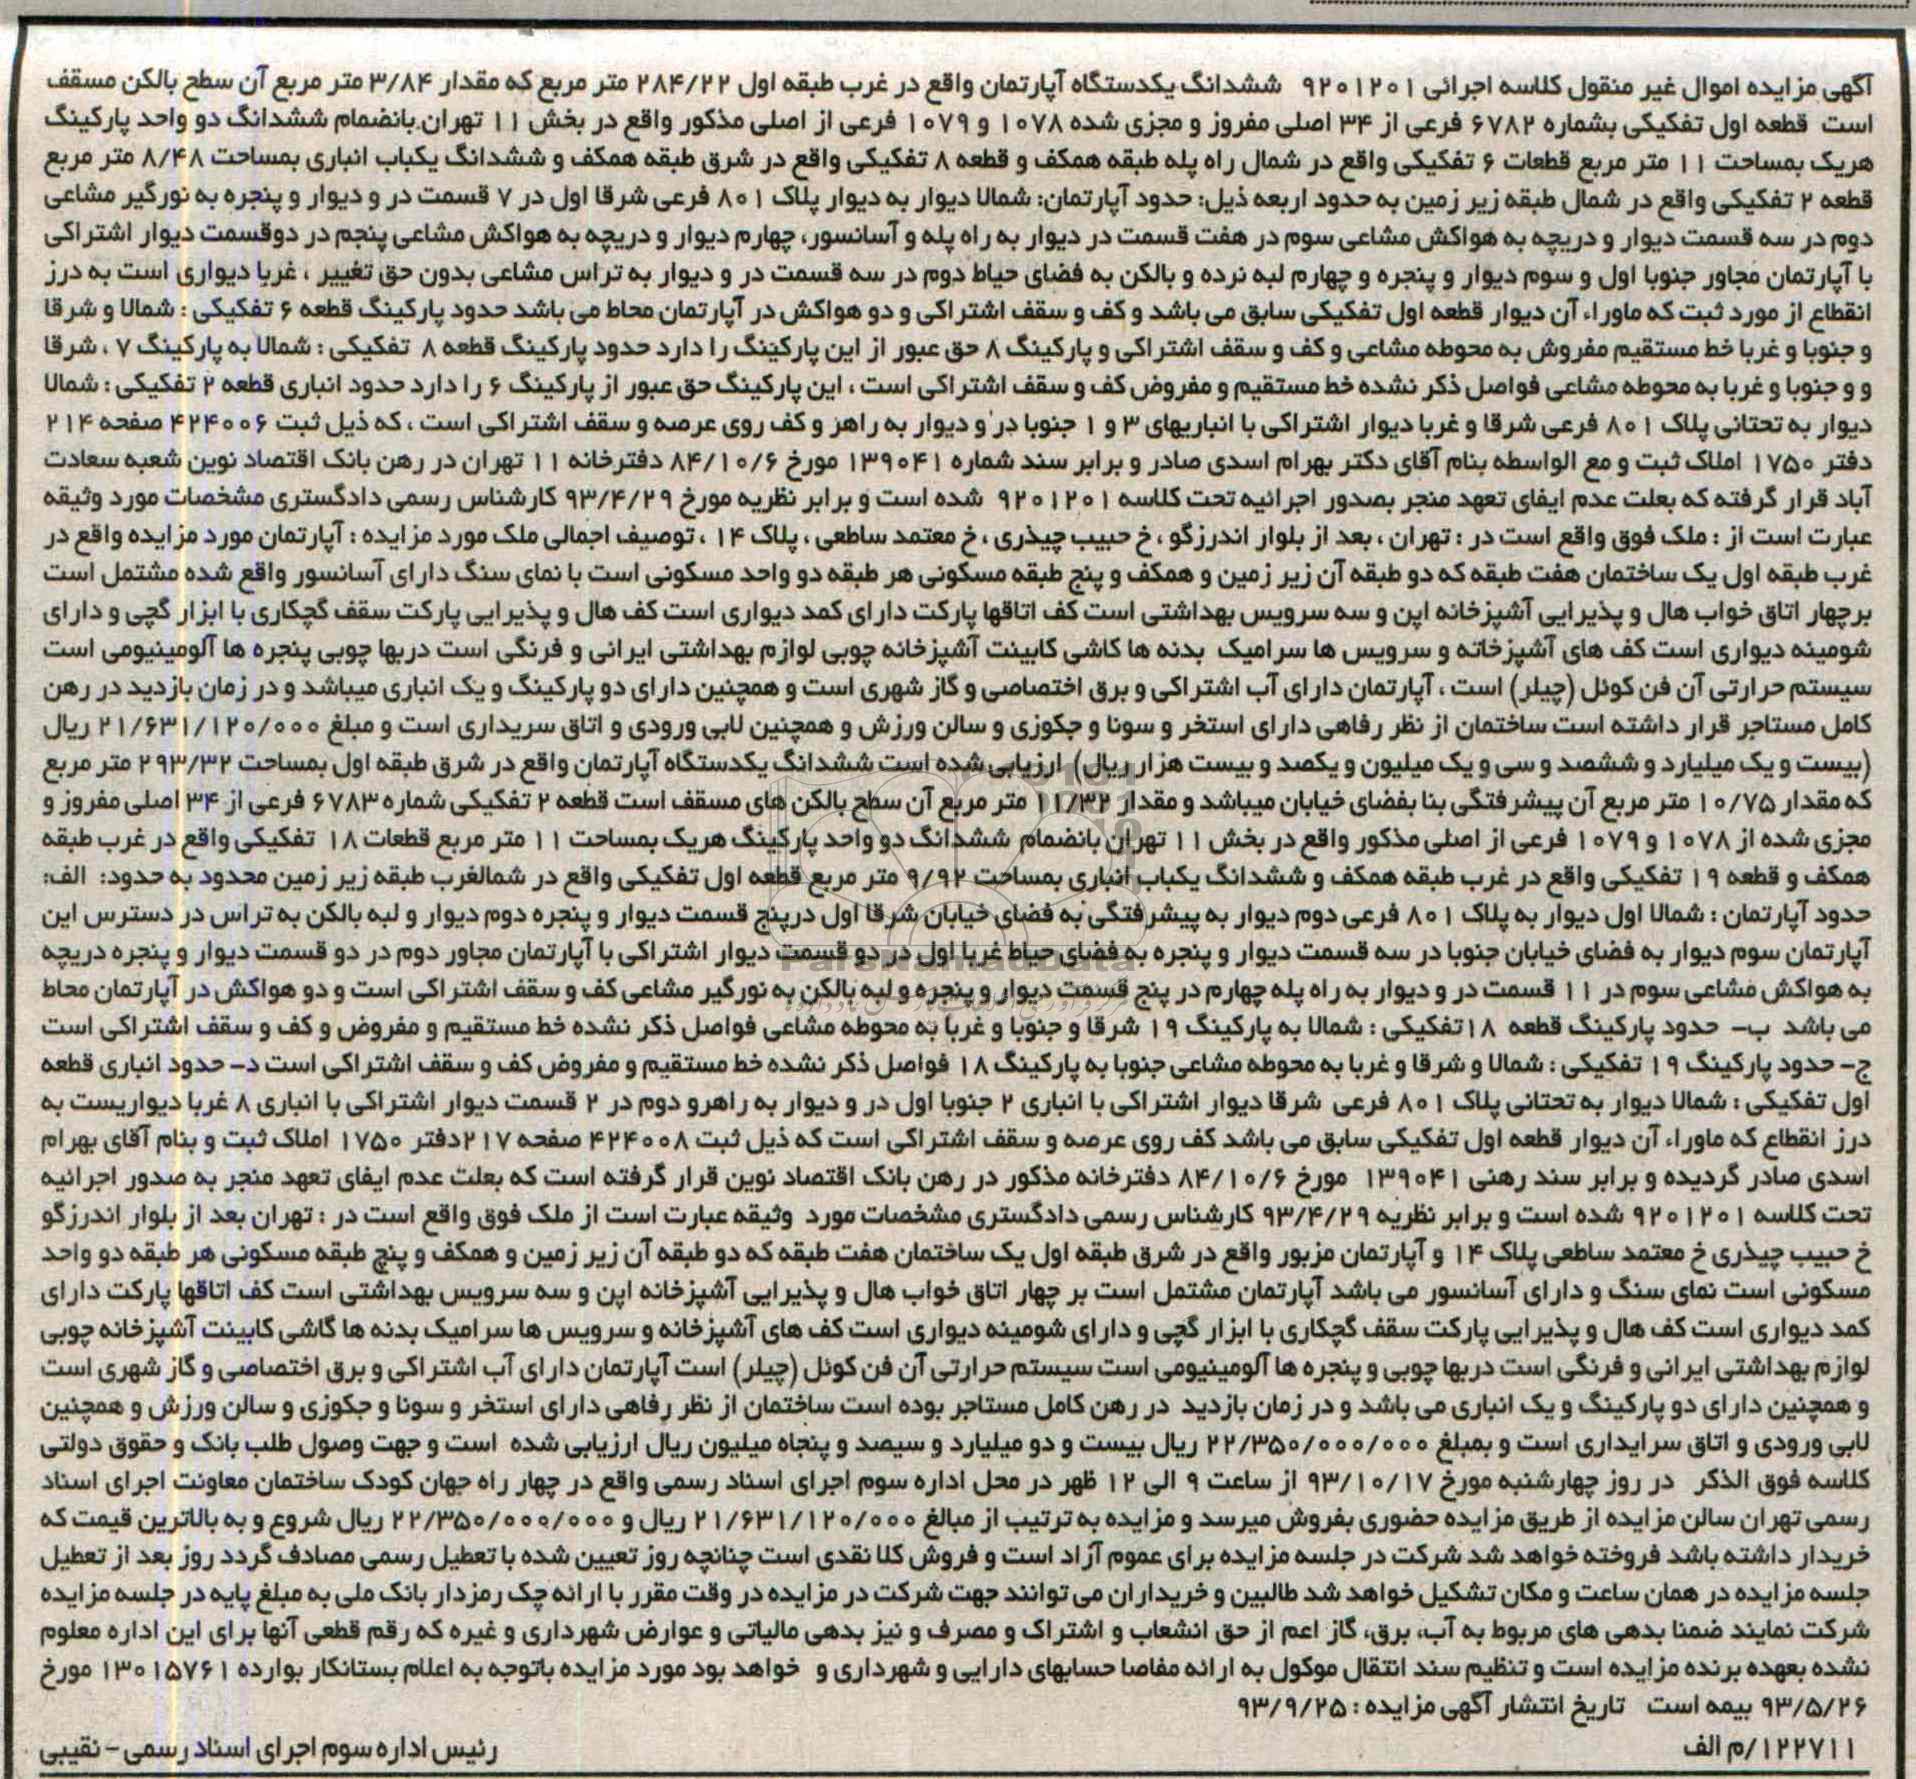 آگهی مزایده اموال غیر منقول کلاسه اجرائی ۹۲۰۱۲۰۱ ششدانگ یکدستگاه آپارتمان واقع در غرب طبقه اول ۲۸۴/۲۲ متر مربع که مقدار ۳/۸۴ متر مربع آن سطح بالکن مسقف
است قطعه اول تفکیکی بشماره ۶۷۸۲ فرعی از ۳۴ اصلی مفروز و مجزی شده ۱۰۷۸ و ۱۰۷۹ فرعی از اصلی مذکور واقع در بخش ۱۱ تهران.بانضمام ششدانگ دو واحد پارکینگ
هریک بمساحت ۱۱ متر مربع قطعات ۶ تفکیکی واقع در شمال راه پله طبقه همکف و قطعه ۸ تفکیکی واقع در شرق طبقه همکف و ششدانگ یکباب انباری بمساحت ۸/۴۸ متر مربع
قطعه ۲ تفکیکی واقع در شمال طبقه زیر زمین به حدود اربعه ذیل: حدود آپارتمان: شمالا دیوار به دیوار پلاک ۸۰۱ فرعی شرقا اول در ۷ قسمت در و دیوار و پنجره به نورگیر مشاعی
دوم در سه قسمت دیوار و دریچه به هواکش مشاعی سوم در هفت قسمت در دیوار به راه پله و آسانسور، چهارم دیوار و دریچه به هواکش مشاعی پنجم در دوقسمت دیوار اشتراکی
با آپارتمان مجاور جنوبا اول و سوم دیوار و پنجره و چهارم لبه نرده و بالکن به فضای حیاط دوم در سه قسمت در و دیوار به تراس مشاعی بدون حق تغییر ، غربا دیواری است به درز
انقطاع از مورد ثبت که ماوراء آن دیوار قطعه اول تفکیکی سابق می باشد و کف و سقف اشتراکی و دو هواکش در آپارتمان محاط می باشد حدود پارکینگ قطعه ۶ تفکیکی : شمالا و شرقا
و جنوبا و غربا خط مستقیم مفروش به محوطه مشاعی و کف و سقف اشتراکی و پارکینگ ۸ حق عبور از این پارکینگ را دارد حدود پارکینگ قطعه ۸ تفکیکی : شمالا به پارکینگ ۷ ، شرقا
و و جنوبا و غربا به محوطه مشاعی فواصل ذکر نشده خط مستقیم و مفروض کف و سقف اشتراکی است ، این پارکینگ حق عبور از پارکینگ ۶ را دارد حدود انباری قطعه ۲ تفکیکی : شمالا
دیوار به تحتانی پلاک ۸۰۱ فرعی شرقا و غربا دیوار اشتراکی با انباریهای ۳ و ۱ جنوبا در و دیوار به راهر و کف روی عرصه و سقف اشتراکی است ، که ذیل ثبت ۴۲۴۰۰۶ صفحه ۲۱۴
دفتر ۱۷۵۰ املاک ثبت و مع الواسطه بنام آقای دکتر بهرام اسدی صادر و برابر سند شماره ۱۳۹۰۴۱ مورخ ۸۴/۱۰/۶ دفترخانه ۱۱ تهران در رهن بانک اقتصاد نوین شعبه سعادت
آباد قرار گرفته که بعلت عدم ایفای تعهد منجر بصدور اجرائیه تحت کلاسه ۹۲۰۱۲۰۱ شده است و برابر نظریه مورخ ۹۳/۴/۲۹ کارشناس رسمی دادگستری مشخصات مورد وثیقه
عبارت است از : ملک فوق واقع است در : تهران ، بعد از بلوار اندرزگو ، خ حبیب چیذری ، خ معتمد ساطعی ، پلاک ۱۴ ، توصیف اجمالی ملک مورد مزایده : آپارتمان مورد مزایده واقع در
غرب طبقه اول یک ساختمان هفت طبقه که دو طبقه آن زیر زمین و همکف و پنج طبقه مسکونی هر طبقه دو واحد مسکونی است با نمای سنگ دارای آسانسور واقع شده مشتمل است
برچهار اتاق خواب هال و پذیرایی آشپزخانه اپن و سه سرویس بهداشتی است کف اتاقها پارکت دارای کمد دیواری است کف هال و پذیرایی پارکت سقف گچکاری با ابزار گچی و دارای
شومینه دیواری است کف های آشپزخانه و سرویس ها سرامیک بدنه ها کاشی کابینت آشپزخانه چوبی لوازم بهداشتی ایرانی و فرنگی است دربها چوبی پنجره ها آلومینیومی است
سیستم حرارتی آن فن کوئل (چیلر) است ، آپارتمان دارای آب اشتراکی و برق اختصاصی و گاز شهری است و همچنین دارای دو پارکینگ و یک انباری میباشد و در زمان بازدید در رهن
کامل مستاجر قرار داشته است ساختمان از نظر رفاهی دارای استخر و سونا و جکوزی و سالن ورزش و همچنین لابی ورودی و اتاق سریداری است و مبلغ ۲۱/۶۳۱/۱۲۰/۰۰۰ ریال
(بیست و یک میلیارد و ششصد و سی و یک میلیون و یکصد و بیست هزار ریال) ارزیابی شده است ششدانگ یکدستگاه آپارتمان واقع در شرق طبقه اول بمساحت ۲۹۳/۳۲ متر مربع
که مقدار ۱۰/۷۵ متر مربع آن پیشرفتگی بنا بفضای خیابان میباشد و مقدار ۱۱/۳۲ متر مربع آن سطح بالکن های مسقف است قطعه ۲ تفکیکی شماره ۶۷۸۳ فرعی از ۳۴ اصلی مفروز و
مجزی شده از ۱۰۷۸ و ۱۰۷۹ فرعی از اصلی مذکور واقع در بخش ۱۱ تهران بانضمام ششدانگ دو واحد پارکینگ هریک بمساحت ۱۱ متر مربع قطعات ۱۸ تفکیکی واقع در غرب طبقه
همکف و قطعه ۱۹ تفکیکی واقع در غرب طبقه همکف و ششدانگ یکباب انباری بمساحت ۹/۹۲ متر مربع قطعه اول تفکیکی واقع در شمالغرب طبقه زیر زمین محدود به حدود: الف:
حدود آپارتمان : شمالا اول دیوار به پلاک ۸۰۱ فرعی دوم دیوار به پیشرفتگی به فضای خیابان شرقا اول درپنج قسمت دیوار و پنجره دوم دیوار و لبه بالکن به تراس در دسترس این
آپارتمان سوم دیوار به فضای خیابان جنوبا در سه قسمت دیوار و پنجره به فضای حیاط غربا اول در دو قسمت دیوار اشتراکی با آپارتمان مجاور دوم در دو قسمت دیوار و پنجره دریچه
به هواکش مشاعی سوم در ۱۱ قسمت در و دیوار به راه پله چهارم در پنج قسمت دیوار و پنجره و لبه بالکن به نورگیر مشاعی کف و سقف اشتراکی است و دو هواکش در آپارتمان محاط
می باشد ب- حدود پارکینگ قطعه ۱۸تفکیکی : شمالا به پارکینگ ۱۹ شرقا و جنوبا و غربا به محوطه مشاعی فواصل ذکر نشده خط مستقیم و مفروض و کف و سقف اشتراکی است
ج- حدود پارکینگ ۱۹ تفکیکی : شمالا و شرقا و غربا به محوطه مشاعی جنوبا به پارکینگ ۱۸ فواصل ذکر نشده خط مستقیم و مفروض کف و سقف اشتراکی است د- حدود انباری قطعه
اول تفکیکی : شمالا دیوار به تحتانی پلاک ۸۰۱ فرعی شرقا دیوار اشتراکی با انباری ۲ جنوبا اول در و دیوار به راهرو دوم در ۲ قسمت دیوار اشتراکی با انباری ۸ غربا دیواریست به
درز انقطاع که ماوراء آن دیوار قطعه اول تفکیکی سابق می باشد کف روی عرصه و سقف اشتراکی است که ذیل ثبت ۴۲۴۰۰۸ صفحه ۲۱۷دفتر ۱۷۵۰ املاک ثبت و بنام آقای بهرام
اسدی صادر گردیده و برابر سند رهنی ۱۳۹۰۴۱ مورخ ۸۴/۱۰/۶ دفترخانه مذکور در رهن بانک اقتصاد نوین قرار گرفته است که بعلت عدم ایفای تعهد منجر به صدور اجرائیه
تحت کلاسه ۹۲۰۱۲۰۱ شده است و برابر نظریه ۹۳/۴/۲۹ کارشناس رسمی دادگستری مشخصات مورد وثیقه عبارت است از ملک فوق واقع است در : تهران بعد از بلوار اندرزگو
خ حبیب چیذری خ معتمد ساطعی پلاک ۱۴ و آپارتمان مزبور واقع در شرق طبقه اول یک ساختمان هفت طبقه که دو طبقه آن زیر زمین و همکف و پنچ طبقه مسکونی هر طبقه دو واحد
مسکونی است نمای سنگ و دارای آسانسور می باشد آپارتمان مشتمل است بر چهار اتاق خواب هال و پذیرایی آشپزخانه اپن و سه سرویس بهداشتی است کف اتاقها پارکت دارای
کمد دیواری است کف هال و پذیرایی پارکت سقف گچکاری با ابزار گچی و دارای شومینه دیواری است کف های آشپزخانه و سرویس ها سرامیک بدنه ها گاشی کابینت آشپزخانه چوبی
لوازم بهداشتی ایرانی و فرنگی است دربها چوبی و پنجره ها آلومینیومی است سیستم حرارتی آن فن کوئل (چیلر) است آپارتمان دارای آب اشتراکی و برق اختصاصی و گاز شهری است
و همچنین دارای دو پارکینگ و یک انباری می باشد و در زمان بازدید در رهن کامل مستاجر بوده است ساختمان از نظر رفاهی دارای استخر و سونا و جکوزی و سالن ورزش و همچنین
لابی ورودی و اتاق سرایداری است و بمبلغ ۲۲/۳۵۰/۰۰۰/۰۰۰ ریال بیست و دو میلیارد و سیصد و پنجاه میلیون ریال ارزیابی شده است و جهت وصول طلب بانک و حقوق دولتی
کلاسه فوق الذکر در روز چهارشنبه مورخ ۹۳/۱۰/۱۷ از ساعت ۹ الی ۱۲ ظهر در محل اداره سوم اجرای اسناد رسمی واقع در چهار راه جهان کودک ساختمان معاونت اجرای اسناد
رسمی تهران سالن مزایده از طریق مزایده حضوری بفروش میرسد و مزایده به ترتیب از مبالغ ۲۱/۶۳۱/۱۲۰/۰۰۰ ریال و ۲۲/۳۵۰/۰۰۰/۰۰۰ ریال شروع و به بالاترین قیمت که
خریدار داشته باشد فروخته خواهد شد شرکت در جلسه مزایده برای عموم آزاد است و فروش کلا نقدی است چنانچه روز تعیین شده با تعطیل رسمی مصادف گردد روز بعد از تعطیل
جلسه مزایده در همان ساعت و مکان تشکیل خواهد شد طالبین و خریداران می توانند جهت شرکت در مزایده در وقت مقرر با ارائه چک رمزدار بانک ملی به مبلغ پایه در جلسه مزایده
شرکت نمایند ضمنا بدهی های مربوط به آب، برق، گاز اعم از حق انشعاب و اشتراک و مصرف و نیز بدهی مالیاتی و عوارض شهرداری و غیره که رقم قطعی آنها برای این اداره معلوم
نشده بعهده برنده مزایده است و تنظیم سند انتقال موکول به ارائه مفاصا حسابهای دارایی و شهرداری و خواهد بود مورد مزایده باتوجه به اعلام بستانکار بوارده ۱۳۰۱۵۷۶۱ مورخ
۹۳/۵/۲۶ بیمه است تاریخ انتشار آگهی مزایده : ۹۳/۹/۲۵
۱۲۲۷۱۱/م الف
رئیس اداره سوم اجرای اسناد رسمی - نقیبی
ParsNamadData